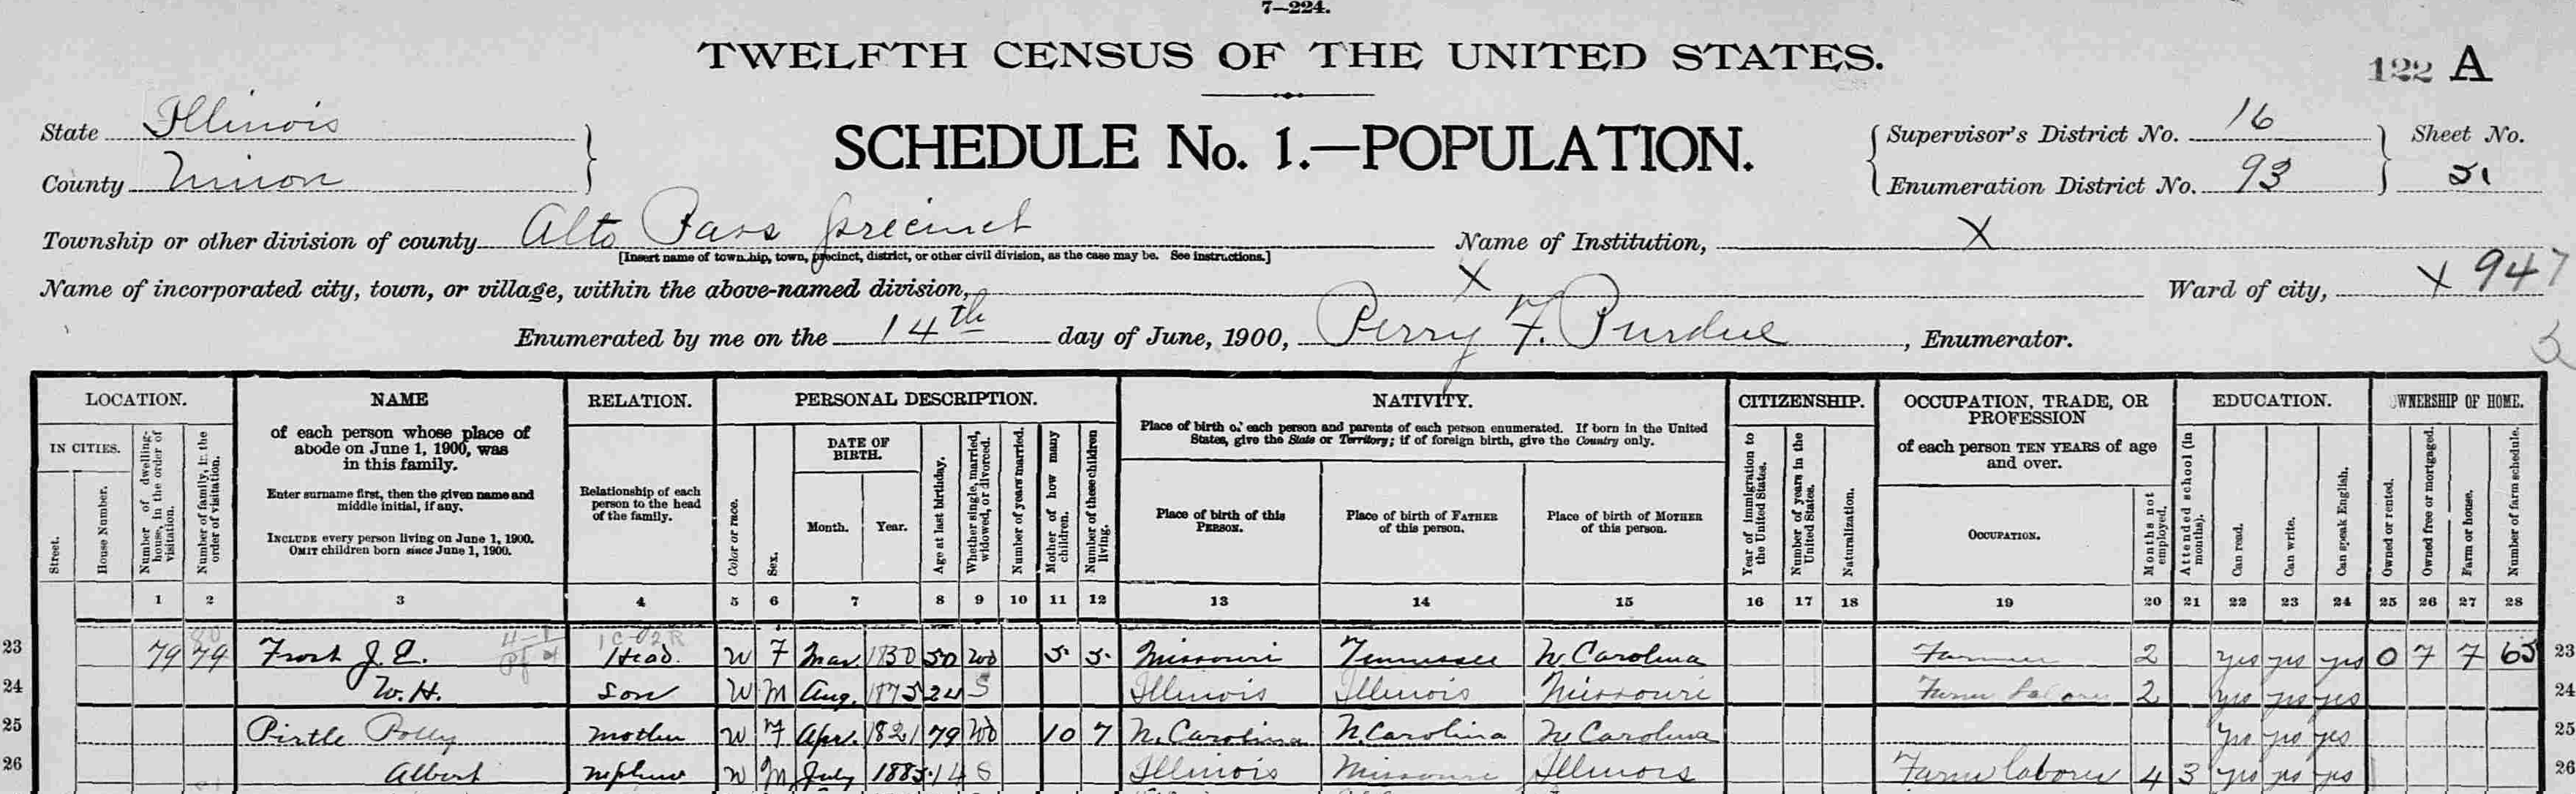 7—224.
TWELFTH CENSUS OF THE UNITED STATES.
122 A
State Illinois
County Union
SCHEDULE No. 1.—POPULATION.
Supervisor's District No. 16
Enumeration District No. 93
Sheet No.
51
Township or other division of county Alto Pass precinct
[Insert name of township, town, precinct, district, or other civil division, as the case may be. See instructions.]
Name of Institution, X
Name of incorporated city, town, or village, within the above-named division, X
Ward of city, X 947
Enumerated by me on the 14th day of June, 1900, Perry F. Purdue, Enumerator.
3
LOCATION. NAME RELATION. PERSONAL DESCRIPTION. NATIVITY. CITIZENSHIP. OCCUPATION, TRADE, OR PROFESSION EDUCATION. OWNERSHIP OF HOME.
IN CITIES.
Street.
House Number.
Number of dwelling-house, in the order of visitation.
Number of family, in the order of visitation.
of each person whose place of abode on June 1, 1900, was in this family.
Enter surname first, then the given name and middle initial, if any.
INCLUDE every person living on June 1, 1900.
OMIT children born since June 1, 1900.
Relationship of each person to the head of the family.
Color or race.
Sex.
DATE OF BIRTH.
Month.
Year.
Age at last birthday.
Whether single, married, widowed, or divorced.
Number of years married.
Mother of how many children.
Number of these children living.
Place of birth of each person and parents of each person enumerated. If born in the United States, give the State or Territory; if of foreign birth, give the Country only.
Place of birth of this PERSON.
Place of birth of FATHER of this person.
Place of birth of MOTHER of this person.
Year of immigration to the United States.
Number of years in the United States.
Naturalization.
of each person TEN YEARS of age and over.
OCCUPATION.
Months not employed.
Attended school (in months).
Can read.
Can write.
Can speak English.
Owned or rented.
Owned free or mortgaged.
Farm or house.
Number of farm schedule.
1 2 3 4 5 6 7 8 9 10 11 12 13 14 15 16 17 18 19 20 21 22 23 24 25 26 27 28
23 79 79 Frost J. E. Head W F Mar 1850 50 Wd 5 5 Missouri Tennessee N. Carolina Farmer 2 yes yes yes O F F 65 23
24 W. H. Son W M Aug. 1875 24 S Illinois Illinois Missouri Farm Laborer 2 yes yes yes 24
25 Pirtle Polly mother W F Apr. 1821 79 Wd 10 7 N. Carolina N. Carolina N Carolina yes yes yes 25
26 Albert nephew W M July 1885 14 S Illinois Missouri Illinois Farm laborer 4 3 yes yes yes 26